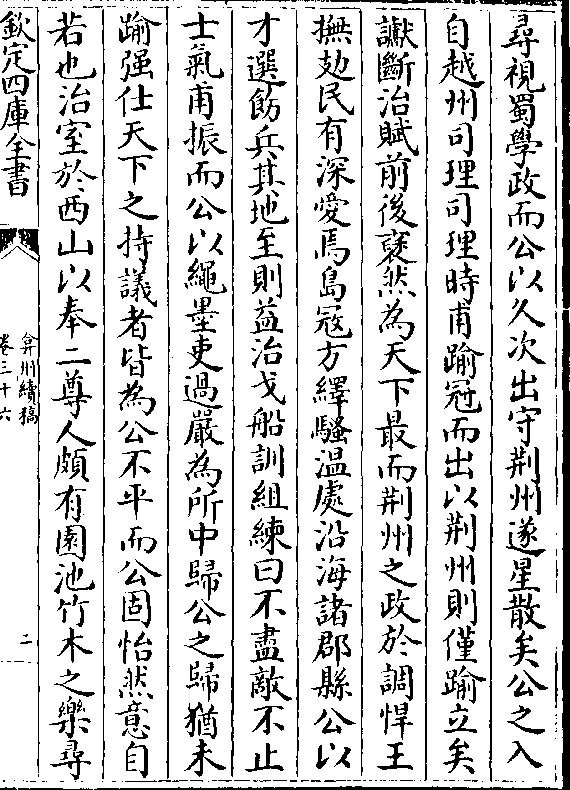 尋視蜀學政而公以久次出守荆州遂星散矣公之入
自越州司理司理時甫踰冠而出以荆州則僅踰立矣
讞斷治賦前後褎然為天下最而荆州之政於調悍王
撫劾民有深愛焉島冦方繹騷温處沿海諸郡縣公以
才選飭兵其地至則益治戈船訓組練曰不盡敵不止
士氣甫振而公以繩墨吏過嚴為所中歸公之歸猶未
踰强仕天下之持議者皆為公不平而公固怡然意自
若也治室於西山以奉二尊人頗有園池竹木之樂尋
欽定四庫全書
弇州續稿
卷三十六
二